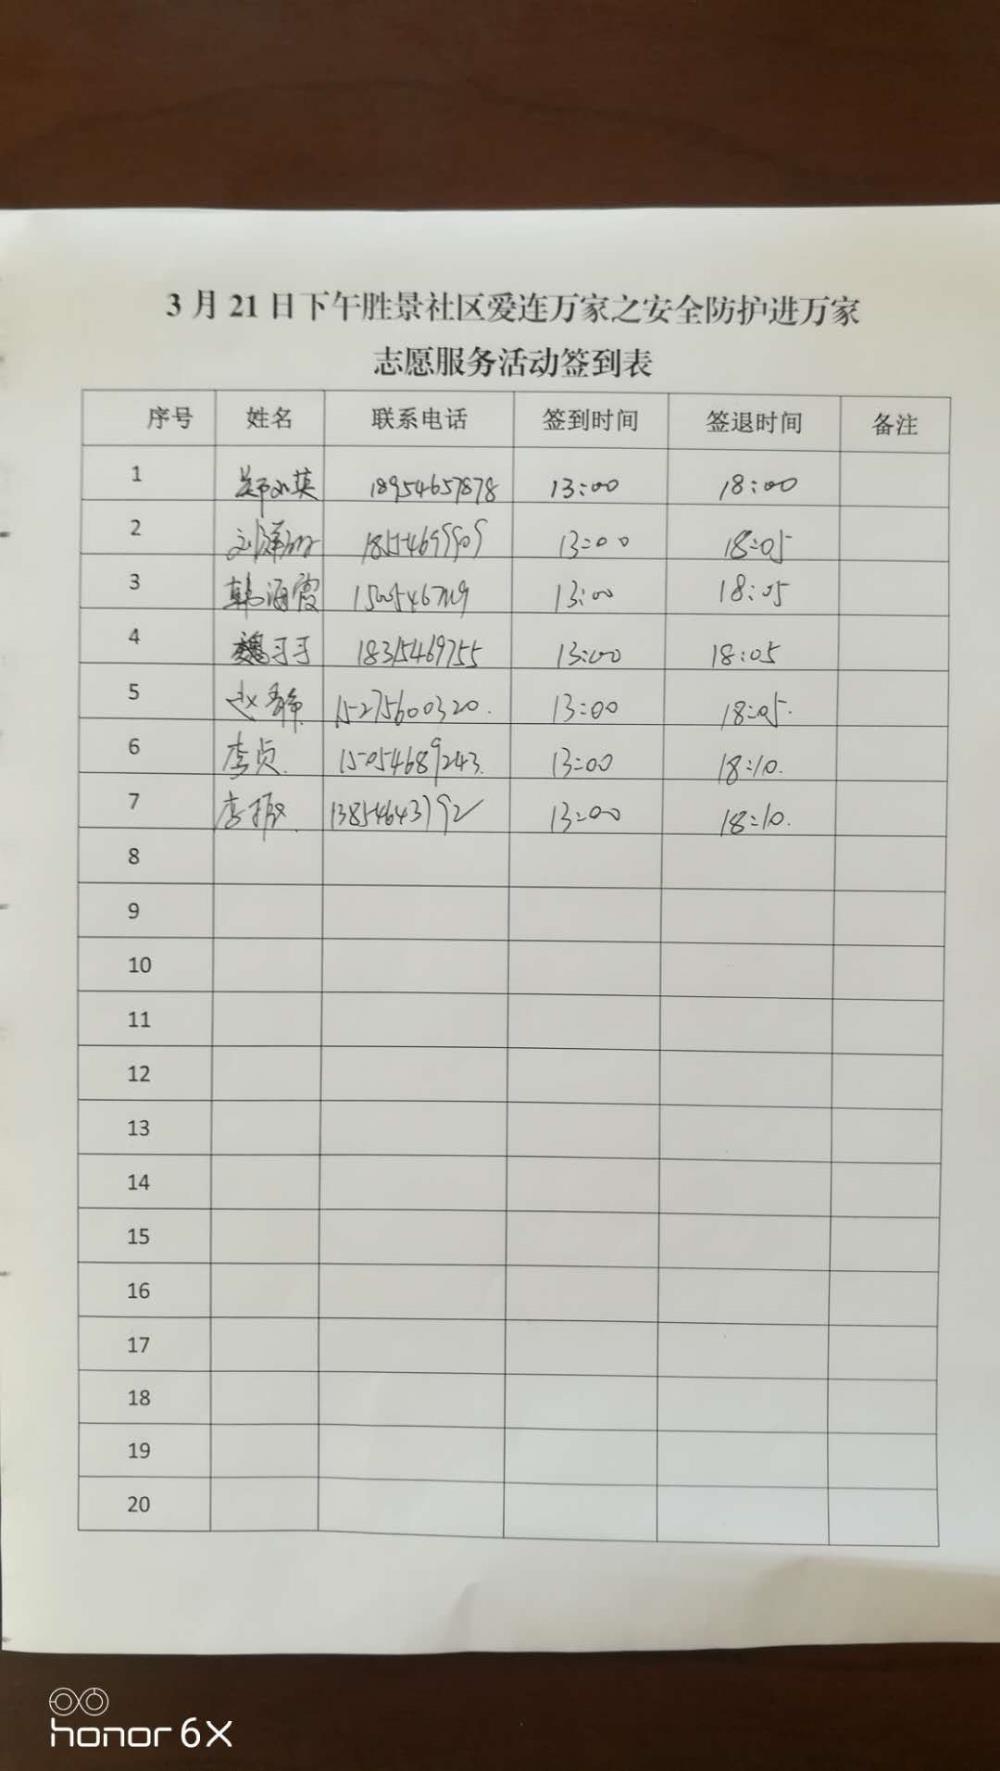 3月21日下午胜景社区爱连万家之安全防护进万家
志愿服务活动签到表
序号 姓名 联系电话 签到时间 签退时间 备注
1 郑 英 18954657878 13:00 18:00
2 刘 13:00 18:05
3 韩海霞 13:00 18:05
4 魏可可 18315469755 13:00 18:05
5 赵静 15275600320. 13:00 18:05.
6 李贞. 15054689243. 13:00 18:10.
7 李 13854643792 13:00 18:10.
8
9
10
11
12
13
14
15
16
17
18
19
20
honor 6X